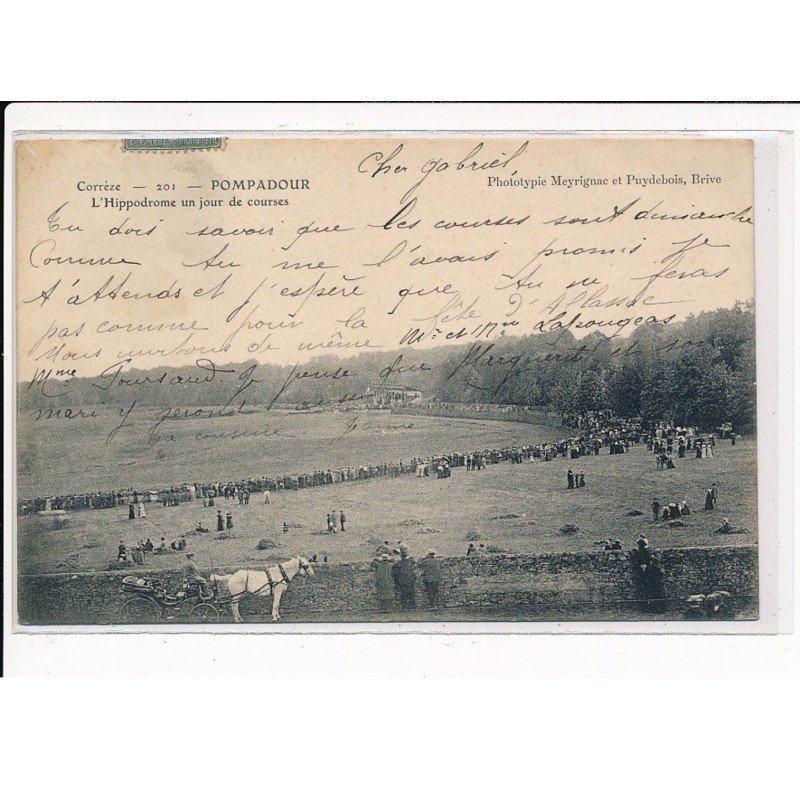 Cher gabriel
Corrèze — 201 — POMPADOUR
Phototypie Meyrignac et Puydebois, Brive
L'Hippodrome un jour de courses
Tu dois savoir que les courses sont dimanche
Comme tu me l'avais promis je
t'attends et j'espère que tu ne feras
pas comme pour la fête d'Allassac
Nous irons de même Mr et Mme
Mme je pense que Marguerite et son
mari y seront aussi
ta cousine